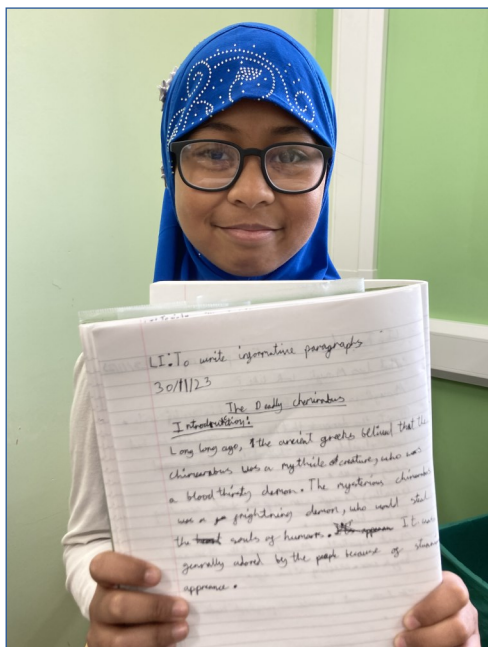 LI: To write informative paragraphs
30/11/23
The Deadly
Introduction:
Long long ago, the ancient greeks belived that the
was a mythicle creature, who was
a blood thirsty demon. The mysterious
was a frightning demon, who would steal
the souls of humans. It was
generally adored by the people because of
apprance.